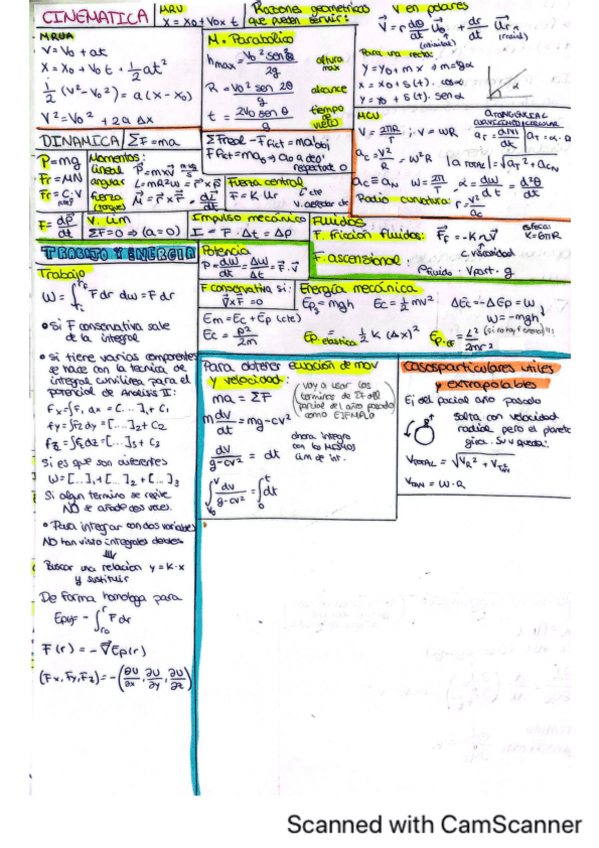 CINEMATICA
MRU
X = X0 + V0x t
Razones geometricas
que pueden servir:
V en polares
V⃗ = r dθ/dt U⃗θ + dr/dt U⃗r
MRUA
V = V0 + at
X = X0 + V0 t + 1/2 at²
1/2 (V² - V0²) = a (X - X0)
V² = V0² + 2a Δx
M. Parabolico
hmax = V0² sen²θ / 2g
altura max
R = V0² sen 2θ / g
alcance
t = 2V0 sen θ / g
tiempo de vuelo
Para una recta:
y = y0 + m x → m = tg α
x = x0 + s(t) . cos α
y = y0 + s(t). sen α
α
MCU
V = 2πR/T ; v = ωR
ac = V²/R = ω²R
|a TOTAL| = √aT² + acN
ac ≡ aN
ω = 2π/T
α = dω/dt = d²θ/dt
Radio curvatura: r = V²/ac
DINAMICA
ΣF = ma
P = mg
Fr = μN
Momentos:
lineal P⃗ = m x V⃗
angular L = mR²ω = r⃗ x P⃗
fuerza (torque) M⃗ = r⃗ x F⃗ = dL⃗/dt
ΣFreal - Ffict = ma obj
Fuerza central
F = K. Ur
cte
F = dp⃗/dt
V. Lim
ΣF = 0 → (a = 0)
Impulso mecánico
I = F . Δt = Δp
Fluidos
F. friccion fluidos: F⃗f = -K η V⃗
esfera:
K = 6πR
c. viscosidad
F. ascensional: ρfluido . Vpart . g
TRABAJO Y ENERGIA
Potencia
P = dW/dt = ΔW/Δt = F⃗ . V⃗
Trabajo
W = ∫ F dr dw = F dr
F conservativa si:
∇⃗ x F = 0
Energía mecánica
Epg = mgh Ec = 1/2 mv² ΔEc = -ΔEp = W
W = -mgh
Em = Ec + Ep (cte)
Ec = P²/2m
Ep. elastica = 1/2 K (Δx)²
Ep. cf = L²/2mr²
• Si F conservativa sale
de la integral
• si tiene varias componentes
se hace con la tecnica de
integral curvilinea para el
potencial de Analisis II:
fx = ∫F1 dx = [...]1 + C1
fy = ∫F2 dy = [...]2 + C2
fz = ∫F3 dz = [...]3 + C3
Si es que son diferentes
W = [...]1 + [...]2 + [...]3
Si algun termino se repite
NO se añade dos veces.
• Para integrar con dos variables
NO han visto integrales dobles
⇓
Buscar una relacion y = K·x
y sustituir
De forma homologa para
= - ∫ F dr
F(r) = - ∇⃗Ep(r)
(Fx, Fy, Fz) = - (∂U/∂x, ∂U/∂y, ∂U/∂z)
Para obtener ecuacion de mov
y velocidad:
ma = ΣF
(voy a usar los
terminos de ΣF del
parcial del año pasado
como EJEMPLO)
m dv/dt = mg - cv²
dv/g-cv² = dt
ahora integro
con los MISMOS
Lim de int.
∫ dv/g-cv² = ∫ dt
Casos particulares utiles
y extrapolables
Ej del parcial año pasado
Salta con velocidad
radial pero el planeta
gira. Su v queda:
VTOTAL = √VR² + VTAN²
VTAN = ω . R
Scanned with CamScanner